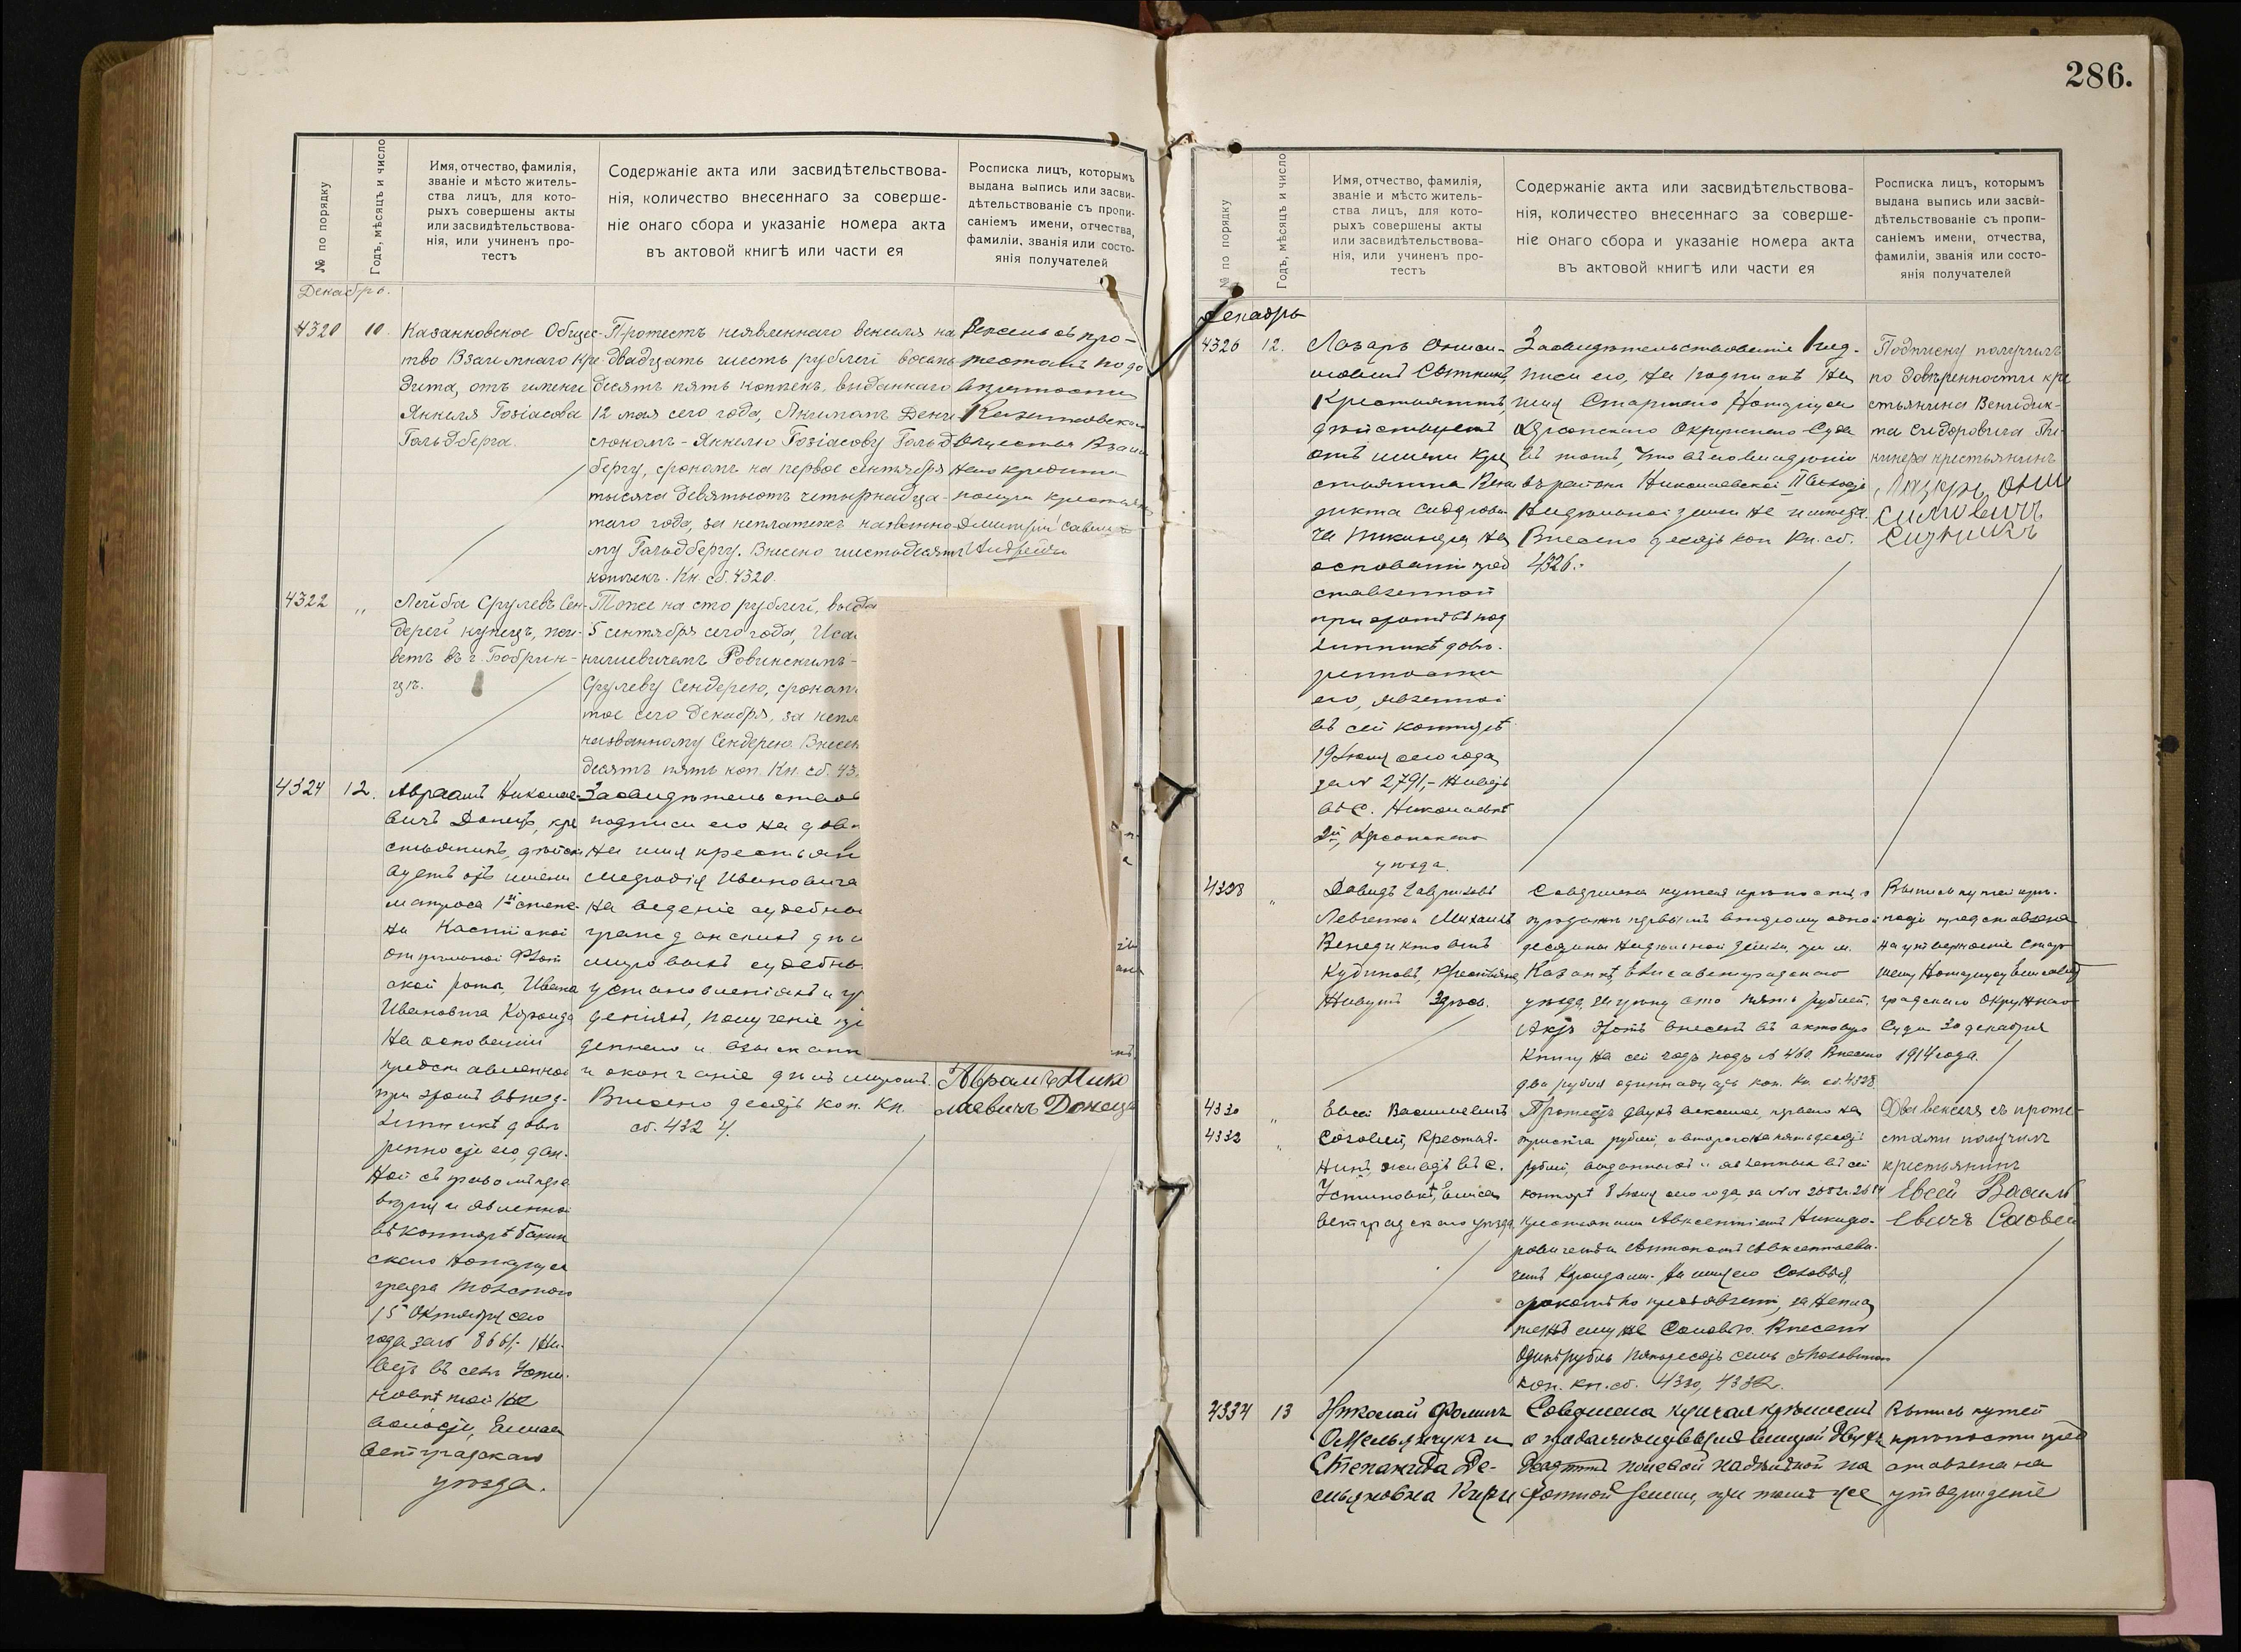 286.
№ по порядку
Годъ, мѣсяцъ и число
Имя, отчество, фамилія,
званіе и мѣсто житель-
ства лицъ, для кото-
рыхъ совершены акты
или засвидѣтельствова-
нія, или учиненъ про-
тестъ
Содержаніе акта или засвидѣтельствова-
нія, количество внесеннаго за соверше-
ніе онаго сбора и указаніе номера акта
въ актовой книгѣ или части ея
Росписка лицъ, которымъ
выдана выпись или засви-
дѣтельствованіе съ пропи-
саніемъ имени, отчества,
фамиліи, званія или состо-
янія получателей
Декабрь.
4320
10.
Казанковское Общес-
тво Взаимнаго Кре-
дита, отъ имени
Янкеля Гозіасова
Гольдберга.
Протестъ неявленнаго векселя на
двадцать шесть рублей восемь
десятъ пять копѣекъ, выданнаго
12 мая сего года,
Янкелю Гозіасову Гольд
бергу, срокомъ на первое сентября
тысяча девятьсотъ четырнадца-
таго года, за неплатежъ названно-
му Гольдбергу. Внесено шестьдесятъ
копѣекъ. Кн. сб. 4320.
Вексель съ про-
тестомъ по до
вѣренности
Казанковскаго
Общества Взаим
наго кредита
получ. крестьянинъ
Дмитрій
4322
"
Лейба Срулевъ Сен-
дерей купецъ, жи-
ветъ въ г. Бобрин-
цѣ.
Тоже на сто рублей, выда
5 сентября сего года,
Ровинскимъ-
Срулеву Сендерею, срокомъ
тое сего декабря, за непл
названному Сендерею. Внесен
десятъ пять коп. Кн. сб. 43
4324
12.
Авраамъ Николае-
вичъ Донецъ, кре
стьянинъ, дѣйст
вуетъ отъ имени
матроса 1й степе-
ни Каспійской
флот
ской роты, Ивана
Ивановича
на основаніи
представленной
при этомъ въ под-
линникѣ довѣ
ренности его, дан-
ной съ правомъ пере
вѣрія и явленной
въ конторѣ Бакин
скаго Нотаріуса
15 Октября сего
года за № 8661,- Жи-
ветъ въ селѣ Усти-
новкѣ той же
волости, Елиса
ветградскаго
уѣзда.
Засвидѣтельствов
подписи его на довѣ
на имя крестьян
Ивановича
на веденіе судебны
гражданскихъ дѣл
мировыхъ судебны
установленіяхъ и уч
деніяхъ, полученіе
и окончаніе дѣлъ миромъ.
Внесено десять коп. Кн.
сб. 4324.
Аврамъ Нико
лаевичъ Донецъ
№ по порядку
Годъ, мѣсяцъ и число
Имя, отчество, фамилія,
званіе и мѣсто житель-
ства лицъ, для кото-
рыхъ совершены акты
или засвидѣтельствова-
нія, или учиненъ про-
тестъ
Содержаніе акта или засвидѣтельствова-
нія, количество внесеннаго за соверше-
ніе онаго сбора и указаніе номера акта
въ актовой книгѣ или части ея
Росписка лицъ, которымъ
выдана выпись или засви-
дѣтельствованіе съ пропи-
саніемъ имени, отчества,
фамиліи, званія или состо-
янія получателей
Декабрь
4326
12.
Лазарь Ониси-
мовичъ Сытникъ,
Крестьянинъ,
дѣйствуетъ
отъ имени Кре
стьянина Вени
дикта Сидорови
ча на
основаніи пред
ставленной
при этомъ въ под
линникѣ довѣ-
ренности
его, явленной
въ сей конторѣ
19 Іюня сего года
за № 2791,- Живетъ
въ с. Николаевкѣ
2й, Херсонскаго
уѣзда.
Засвидѣтельствованіе под-
писи его, на подпискѣ на
имя Старшаго Нотаріуса
Херсонскаго Окружнаго Суда
въ томъ, что въ его владѣніи
въ районѣ Николаевской II волости
надѣльной земли не имѣется.
Внесено десять коп Кн. сб.
4326.-
Подписку получилъ
по довѣренности кре
стьянина Венидик-
та Сидоровича
крестьянинъ
Лазарь Они
симовичъ
Ситникъ
4328
"
Давидъ
Левченко и Михаилъ
Венедиктовичъ
Кубиковъ, Крестьяне,
Живутъ здѣсь.
Совершена купчая крѣпость о
продажѣ первымъ второму одной
десятины надѣльной земли, при м.
Казанкѣ, Елисаветградскаго
уѣзда, за цѣну сто пять рублей.
Актъ этотъ внесенъ въ актовую
Книгу на сей годъ подъ № 460. Внесено
два рубля одиннадцать коп. Кн. сб. 4328
Выпись купчей крѣ-
пости представлена
на утвержденіе Стар
шему Нотаріусу Елисавет
градскаго Окружнаго
Суда 30 декабря
1914 года.
4330
4332
"
"
Евсей Васильевичъ
Соловей, Крестья-
нинъ, живетъ въ с.
Устиновкѣ, Елиса
ветградскаго уѣзда
Протестъ двухъ векселей, перваго на
триста рублей, а второго на пятьдесятъ
рублей, выданныхъ и явленныхъ въ сей
конторѣ 8 Іюня сего года, за №№
крестьянами Авксентіемъ Никифо-
ровичемъ и Антономъ Авксентьеви-
чемъ на имя его Соловья,
срокомъ по предъявленіи, за непла
тежъ ему же Соловью. Внесено
Одинъ рубль пятьдесятъ семь съ половиною
коп. Кн. сб. 4330, 4332.
Два векселя съ проте-
стами получилъ
крестьянинъ
Евсей Василь
Евичъ Соловей
4334
13
Николай Фомичъ
Омельянчукъ и
Степанида Де-
мьяновна Кири
Совершена купчая крѣпость
о продажѣ первымъ второй двухъ
десятинъ полевой надѣльной па
хотной земли, при томъ же
Выпись купчей
крѣпости пред
ставлена на
утвержденіе